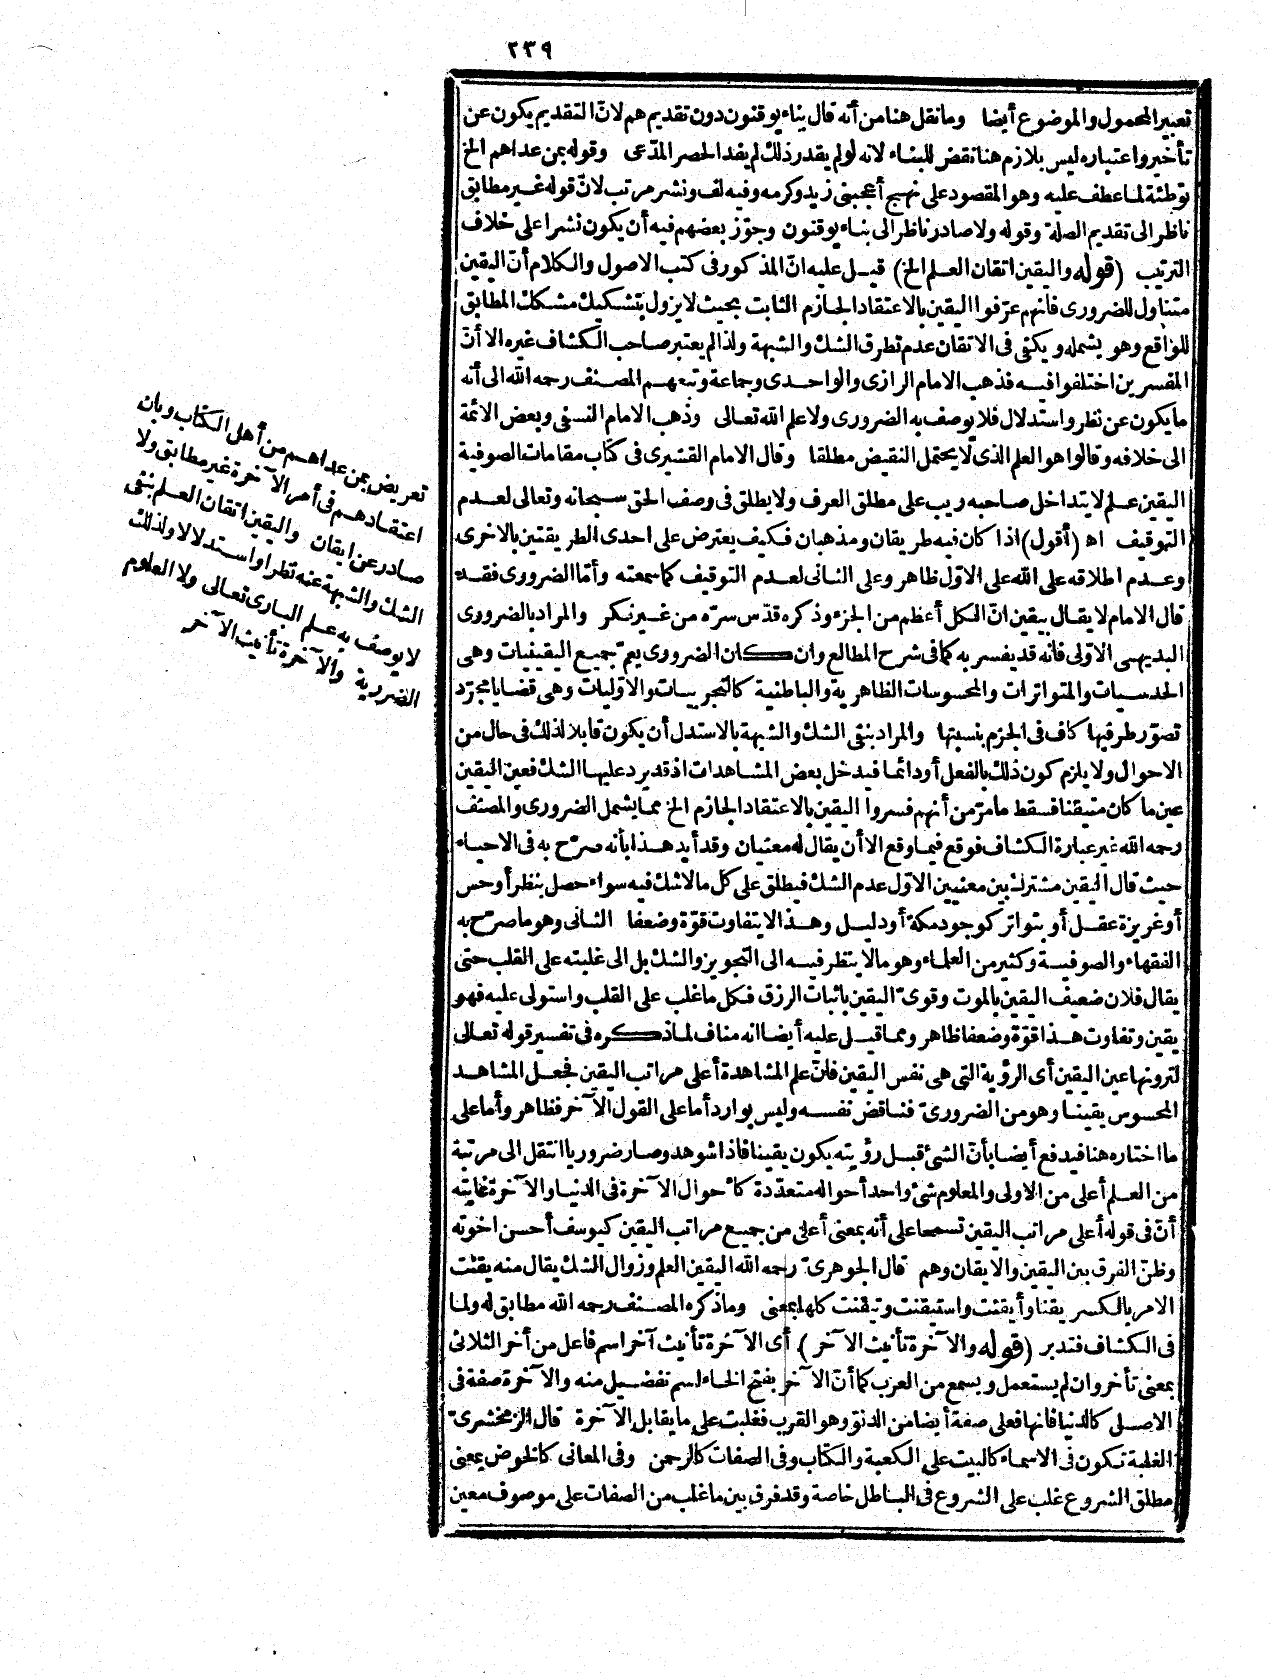 ٢٣٩
تعبير المحمول والموضوع أيضا وما نقل هنا من أنه قال بناء يوقنون دون تقديم هم لانّ التقديم يكون عن
تأخير واعتباره ليس بلازم هنا نقض للبناء لانه لو لم يقدر ذلك لم يفد الحصر المدّعى وقوله بمن عداهم الخ
توطئة لما عطف عليه وهو المقصود على نهج أعجبنى زيد وكرمه وفيه لف ونشر مرتب لانّ قوله غير مطابق
ناظر الى تقديم الصلة وقوله ولا صادر ناظر الى بناء يوقنون وجوّز بعضهم فيه أن يكون نشرا على خلاف
الترتيب (قوله واليقين اتقان العلم الخ) قيل عليه انّ المذكور فى كتب الاصول والكلام أنّ اليقين
متناول للضرورى فانهم عرّفوا اليقين بالاعتقاد الجازم الثابت بحيث لا يزول بتشكيك مشكك المطابق
للواقع وهو يشمله ويكفى فى الاتقان عدم تطرق الشك والشبهة ولذا لم يعتبر صاحب الكشاف غيره الا أنّ
المفسرين اختلفوا فيه فذهب الامام الرازى والواحدى وجماعة وتبعهم المصنف رحمه الله الى أنه
ما يكون عن نظر واستدلال فلا يوصف به الضرورى ولا علم الله تعالى وذهب الامام النسفى وبعض الائمة
الى خلافه وقالوا هو العلم الذى لا يحتمل النقيض مطلقا وقال الامام القشيرى فى كتاب مقامات الصوفية
اليقين علم لا يتداخل صاحبه ريب على مطلق العرف ولا يطلق فى وصف الحق سبحانه وتعالى لعدم
التوقيف اه (أقول) اذا كان فيه طريقان ومذهبان فكيف يعترض على احدى الطريقتين بالاخرى
وعدم اطلاقه على الله على الاوّل ظاهر وعلى الثانى لعدم التوقيف كما سمعته وأمّا الضرورى فقد
قال الامام لا يقال بيقين انّ الكل أعظم من الجزء وذكره قدّس سرّه من غير نكر والمراد بالضرورى
البديهى الاولى فانه قد يفسر به كما فى شرح المطالع وان كان الضرورى يعمّ جميع اليقينيات وهى
الحدسيات والمتواترات والمحسوسات الظاهرية والباطنية كالتجربيات والاوّليات وهى قضايا مجرّد
تصوّر طرفيها كاف فى الجزم بنسبتها والمراد بنفى الشك والشبهة بالاستدل أن يكون قابلا لذلك فى حال من
الاحوال ولا يلزم كون ذلك بالفعل أو دائما فيدخل بعض المشاهدات اذ قد يرد عليها الشك فعين اليقين
عين ما كان متيقنا فسقط ما مرّ من أنهم فسروا اليقين بالاعتقاد الجازم الخ مما يشمل الضرورى والمصنف
رحمه الله غير عبارة الكشاف فوقع فيما وقع الا أن يقال له معنيان وقد أيد هذا بأنه صرّح به فى الاحياء
حيث قال اليقين مشترك بين معنيين الاوّل عدم الشك فيطلق على كل ما لا شك فيه سواء حصل بنظر أو حس
أو غريزة عقل أو بتواتر كوجود مكة أو دليل وهذا لا يتفاوت قوّة وضعفا الثانى وهو ما صرّح به
الفقهاء والصوفية وكثير من العلماء وهو ما لا ينظر فيه الى التجويز والشك بل الى غلبته على القلب حتى
يقال فلان ضعيف اليقين بالموت وقوىّ اليقين باثبات الرزق فكل ما غلب على القلب واستولى عليه فهو
يقين وتفاوت هذا قوّة وضعفا ظاهر ومما قيل عليه أيضا انه مناف لما ذكره فى تفسير قوله تعالى
لترونها عين اليقين أى الرؤية التى هى نفس اليقين فانّ علم المشاهدة أعلى مراتب اليقين فجعل المشاهد
المحسوس يقينا وهو من الضرورىّ فناقض نفسه وليس بوارد أما على القول الآخر فظاهر وأما على
ما اختاره هنا فيدفع أيضا بأنّ الشئ قبل رؤيته يكون يقينا فاذا شوهد وصار ضروريا انتقل الى مرتبة
من العلم أعلى من الاولى والمعلوم شئ واحد أحواله متعدّدة كأحوال الآخرة فى الدنيا والآخرة غايته
أنّ فى قوله أعلى مراتب اليقين تسمحا على أنه بمعنى أعلى من جميع مراتب اليقين كيوسف أحسن اخوته
وظنّ الفرق بين اليقين والايقان وهم قال الجوهرىّ رحمه الله اليقين العلم وزوال الشك يقال منه يقنت
الامر بالكسر يقنا وأيقنت واستيقنت وتيقنت كلها بمعنى وما ذكره المصنف رحمه الله مطابق له ولما
فى الكشاف فتدبر (قوله والآخرة تأنيث الآخر) أى الآخرة تأنيث آخر اسم فاعل من أخر الثلاثى
بمعنى تأخر وان لم يستعمل ويسمع من العرب كما أنّ الآخر بفتح الخاء اسم تفضيل منه والآخرة صفة فى
الاصل كالدنيا فانها فعلى صفة أيضا من الدنوّ وهو القرب فغلبت على ما يقابل الآخرة قال الزمخشرىّ
الغلبة تكون فى الاسماء كالبيت على الكعبة والكتاب وفى الصفات كالرحمن وفى المعانى كالخوض بمعنى
مطلق الشروع غلب على الشروع فى الباطل خاصة وقد فرق بين ما غلب من الصفات على موصوف معين
تعريض بمن عداهم من أهل الكتاب وبان
اعتقادهم فى أمر الآخرة غير مطابق ولا
صادر عن ايقان واليقين اتقان العلم بنفى
الشك والشبهة عنه نظرا واستدلالا ولذلك
لا يوصف به علم البارى تعالى ولا العلوم
الضرورية والآخرة تأنيث الآخر